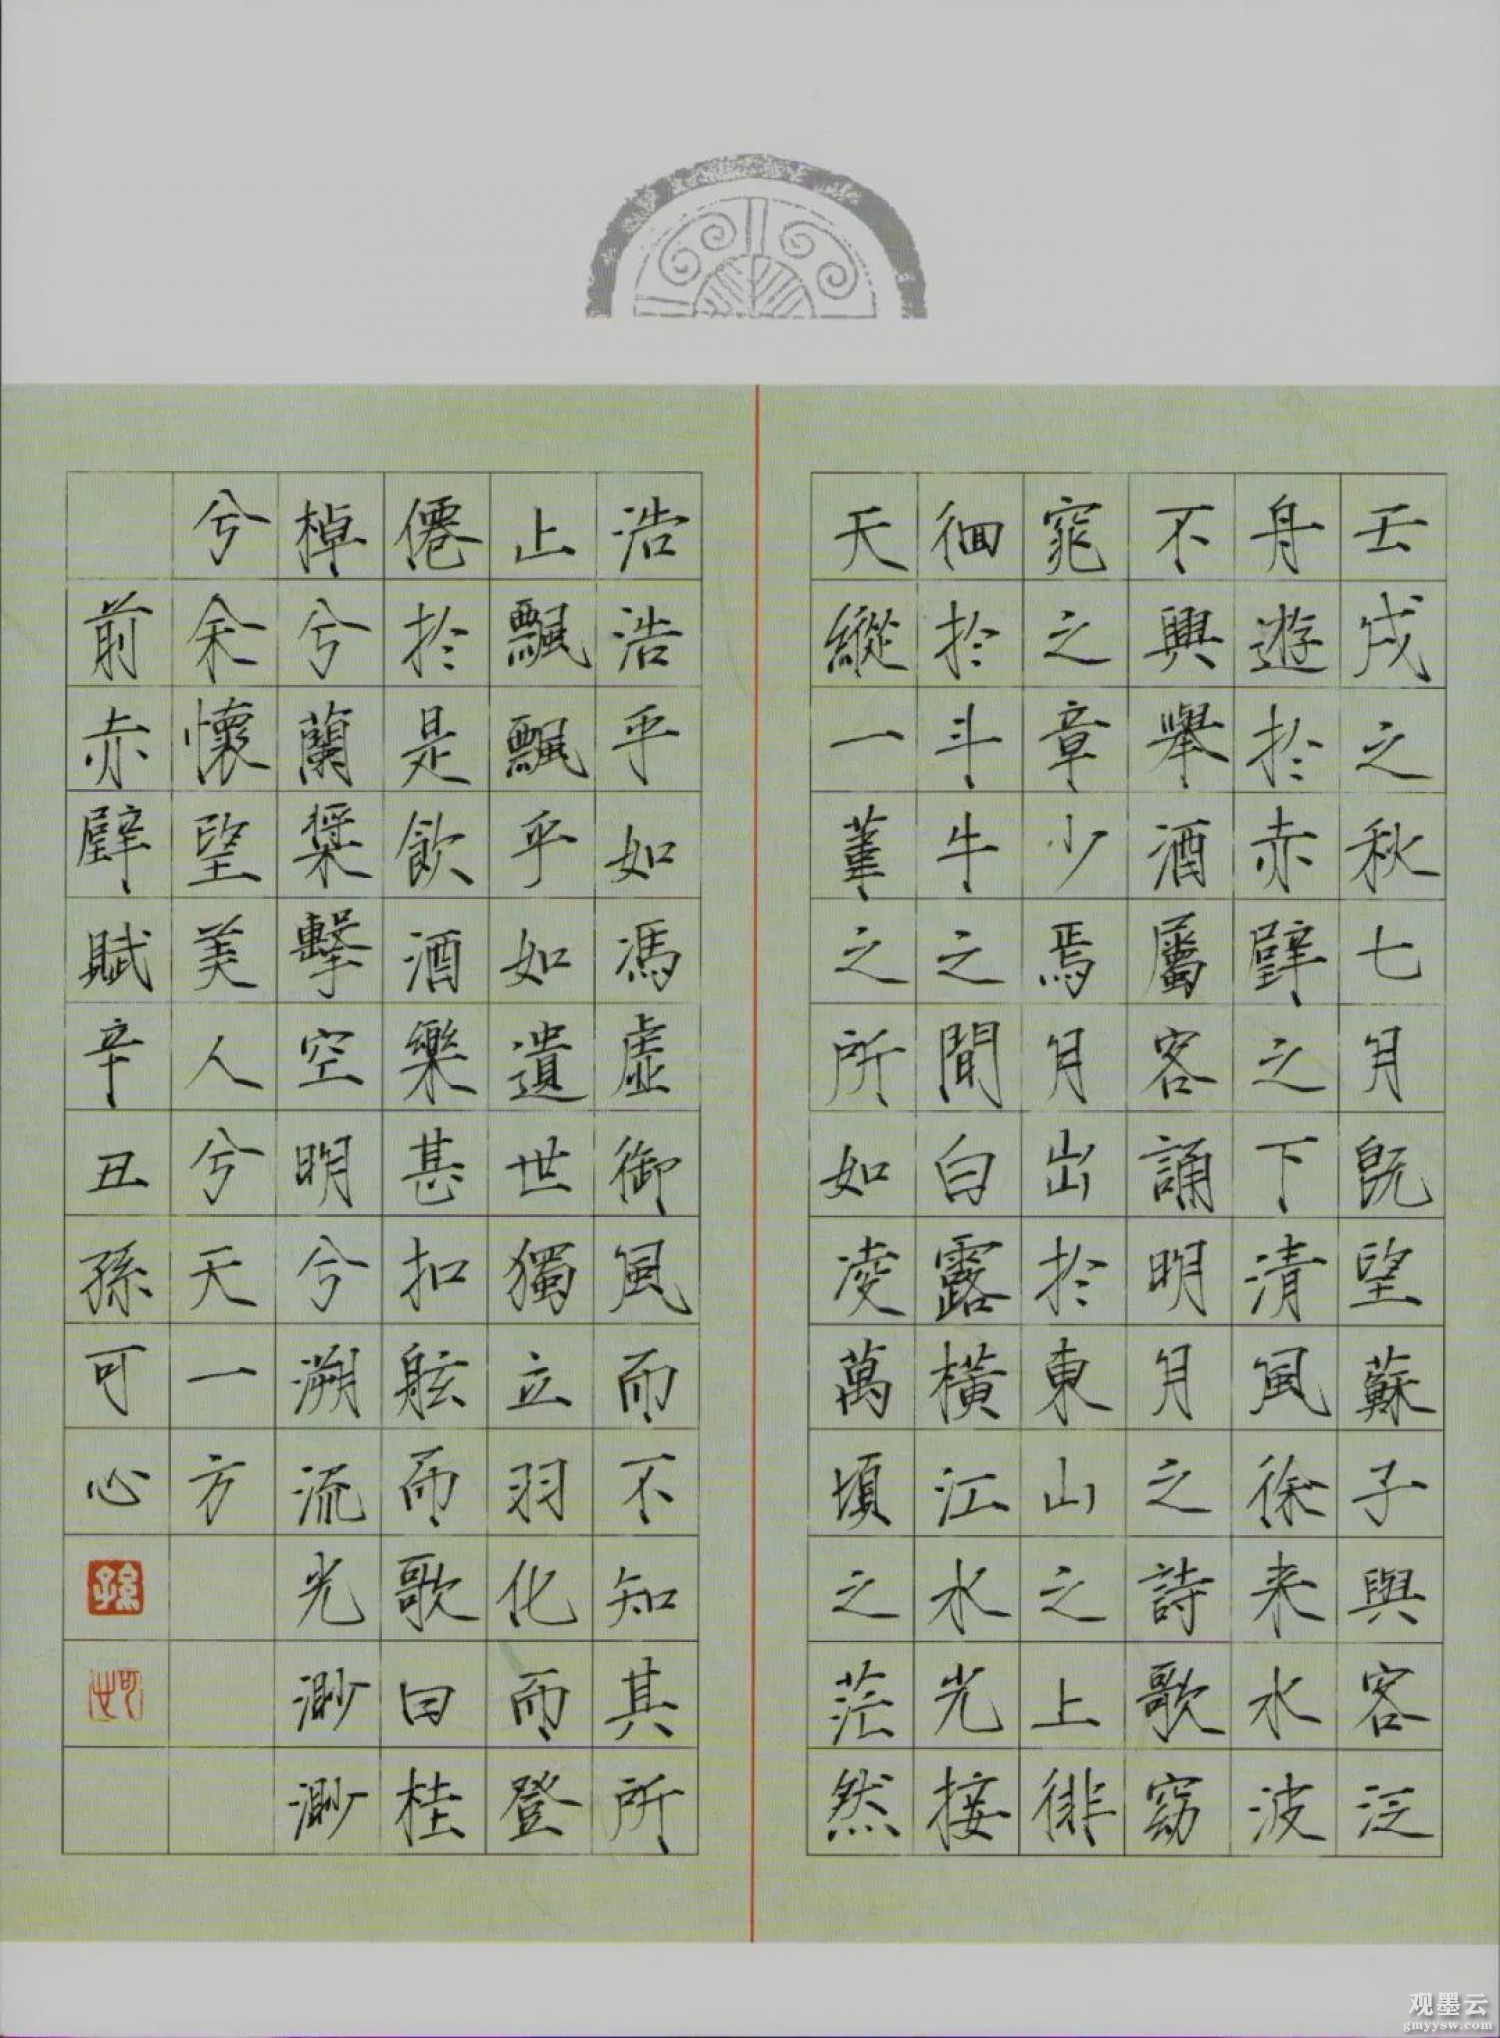 壬戌之秋七月既望蘇子與客泛
舟遊於赤壁之下清風徐来水波
不興舉酒屬客誦明月之詩歌窈
窕之章少焉月出於東山之上徘
徊於斗牛之間白露橫江水光接
天縱一葦之所如凌萬頃之茫然
浩浩乎如馮虛御風而不知其所
止飄飄乎如遺世獨立羽化而登
僊於是飲酒樂甚扣舷而歌曰桂
棹兮蘭槳擊空明兮溯流光渺渺
兮余懷望美人兮天一方
前赤壁賦辛丑孫可心
孫
可心
观墨云
gmyysw.com